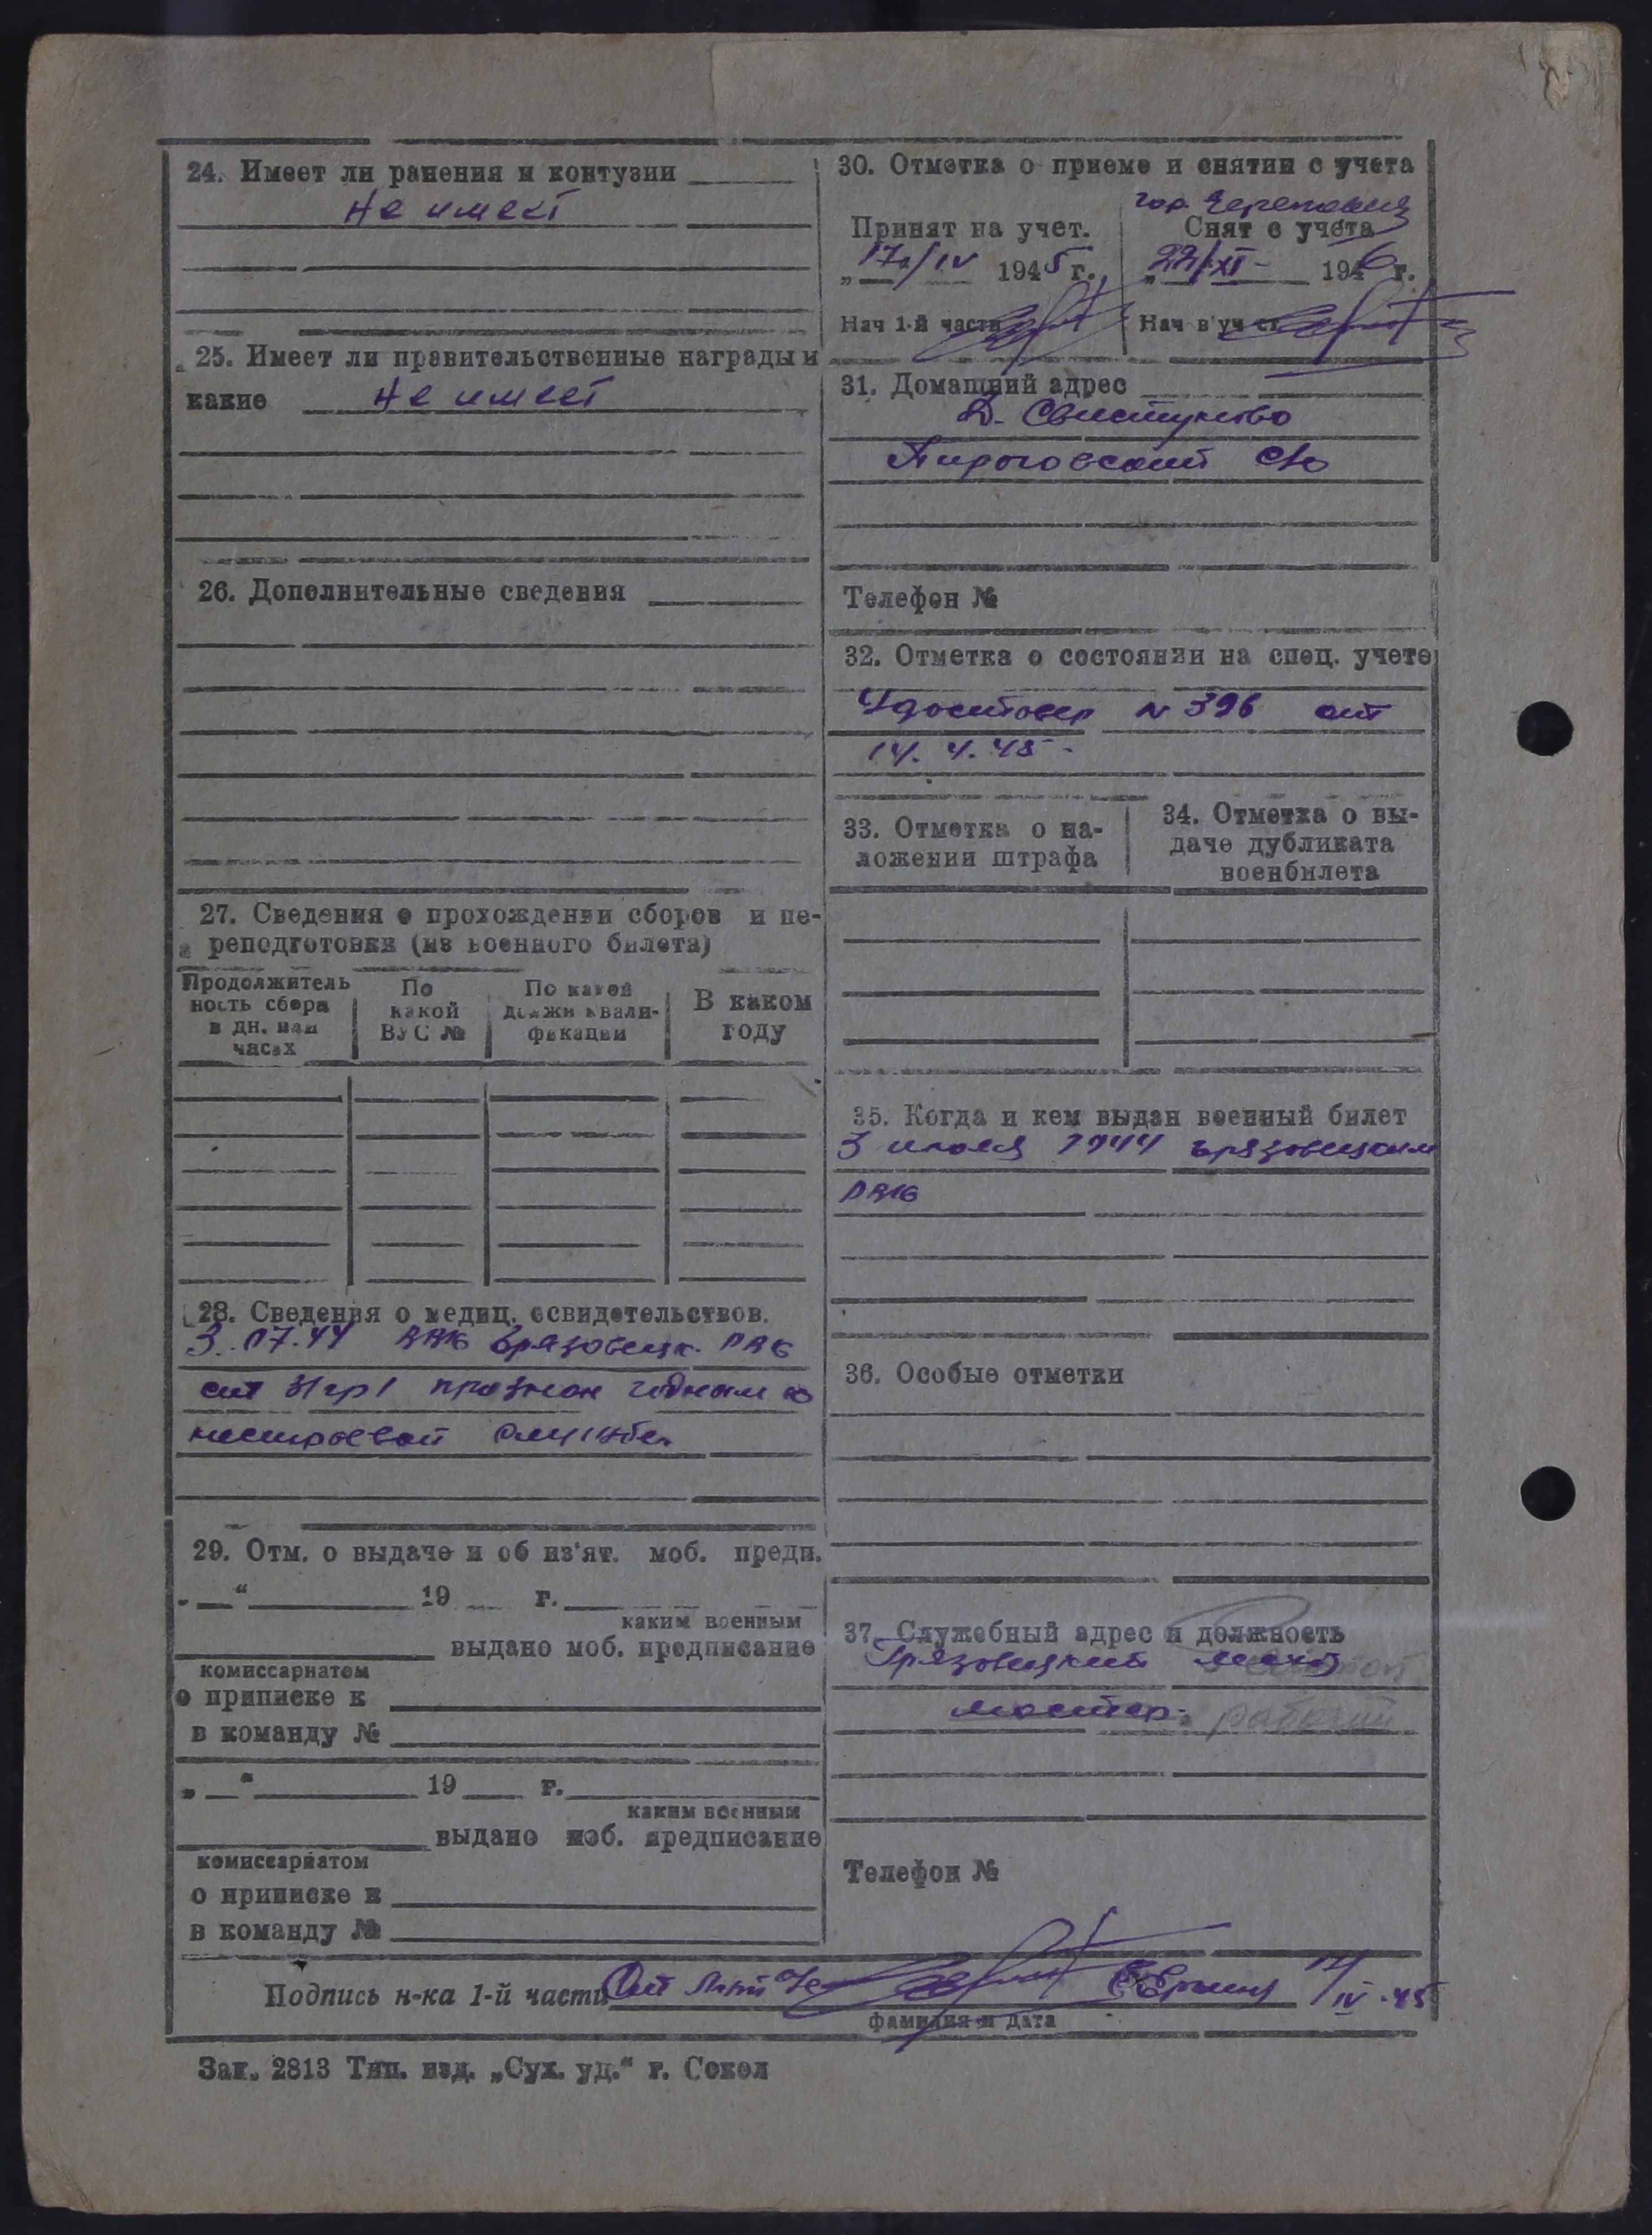 24. Имеет ли ранения и контузии
Не имеет
25. Имеет ли правительственные награды и
какие Не имеет
26. Дополнительные сведения
27. Сведения о прохождении сборов и пе-
реподготовки (из военного билета)
Продолжитель
ность сбора
в дн. или
часах
По
какой
ВУС №
По какой
должн квали-
фикации
В каком
году
28. Сведения о медиц. освидетельствов.
3.07.44 ВВК Грязовецк. РВК
ст 31 гр I признан годным к
нестроевой службе.
29. Отм. о выдаче и об из'ят. моб. предп.
„ “ 19 г.
каким военным
выдано моб. предписание
комиссариатом
о приписке к
в команду №
„ “ 19 г.
каким военным
выдано моб. предписание
комиссариатом
о приписке к
в команду №
30. Отметка о приеме и снятии с учета
гор. Череповец
Принят на учет.
„17“/IV 1945 г.
Нач 1-й части
Снят с учета
„22/XI 1946 г.
Нач в'уч ст
31. Домашний адрес
Д. Свистуново
Пироговский с/с
Телефон №
32. Отметка о состоянии на спец. учете
Удостовер № 396 от
14. 4. 45
33. Отметка о на-
ложении штрафа
34. Отметка о вы-
даче дубликата
военбилета
35. Когда и кем выдан военный билет
3 июля 1944 Грязовецким
РВК
36. Особые отметки
37. Служебный адрес и должность
Грязовецкий
мастер. рабочий
Телефон №
Подпись н-ка 1-й части
IV-45
фамилия и дата
Зак. 2813 Тип. изд. „Сух. уд.“ г. Сокол